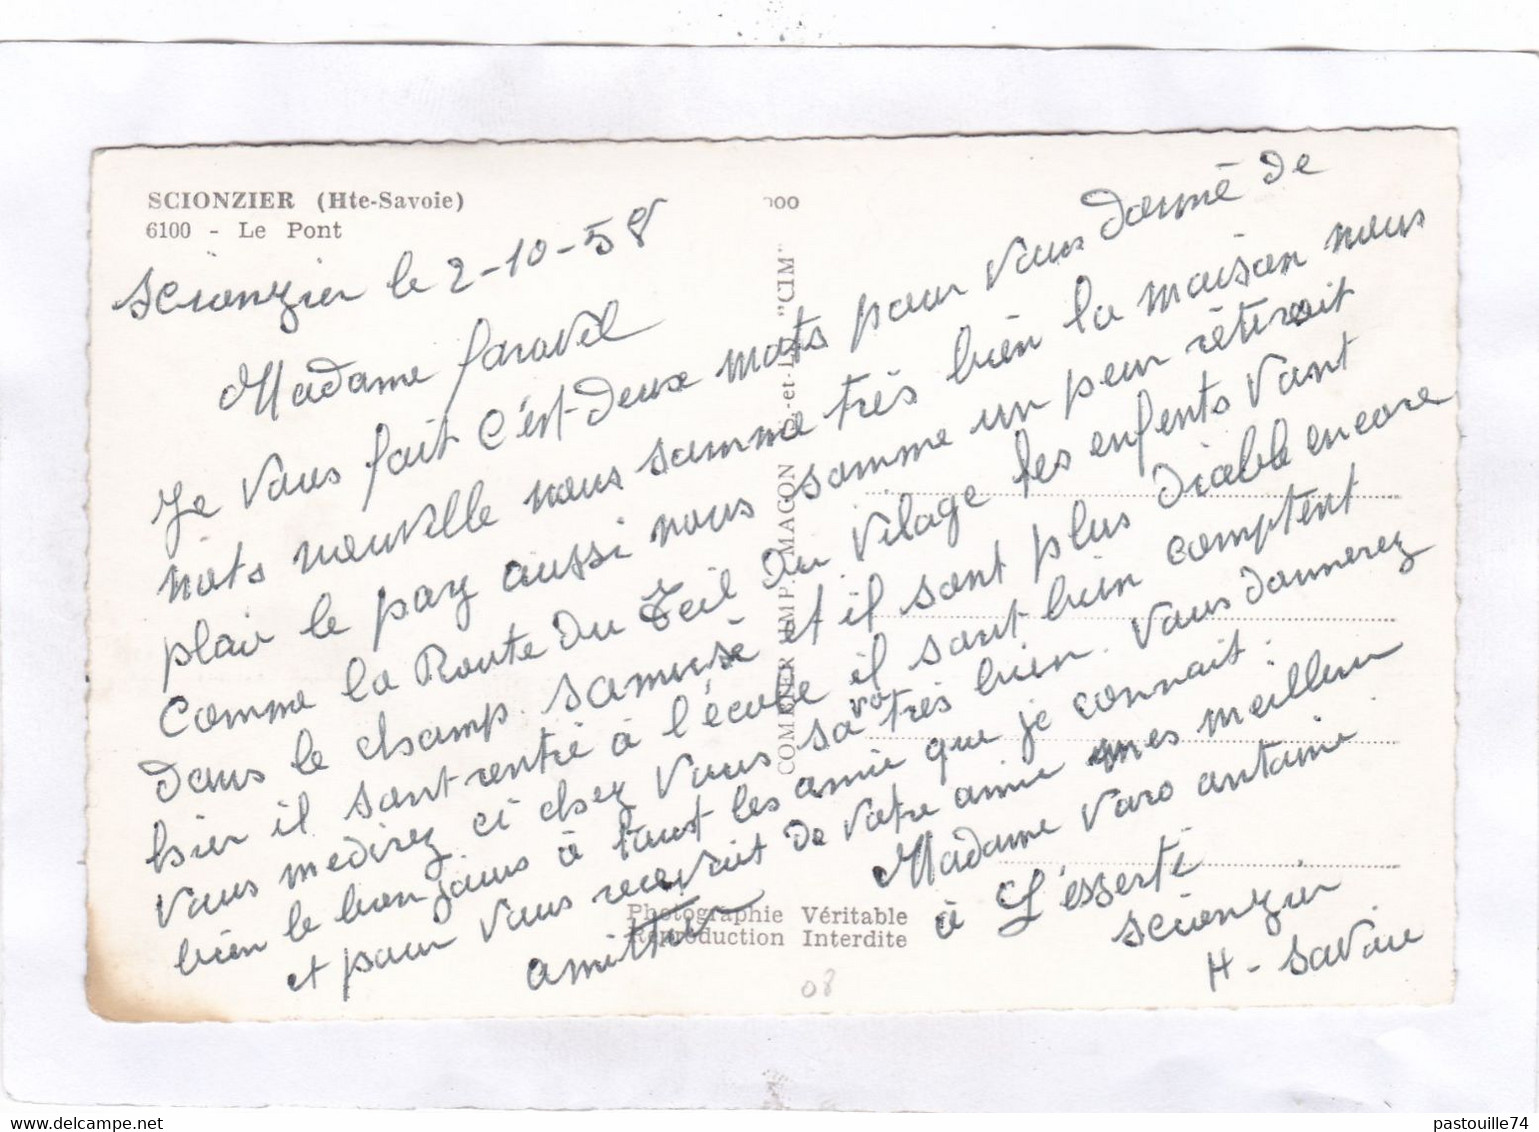 SCIONZIER (Hte-Savoie)
6100 - Le Pont
Scionzier le 2-10-58
Madame Faravel
Je Vous fait c'est deux mots pour Vous donné de
nots nouvelle nous somme très bien la maison nous
plair le pay aussi nous somme un peur rétirait
comme la Route Du Teil Du Vilage les enfents Vant
Dans le champ samusé et il sont plus Diable encore
hier il sont rentré à l'école il sont bien comptent
Vous medirez ci chez Vous sa va très bien. Vous donnerez
bien le bonjours à tout les amie que je connait.
et pour Vous recevait de Votre amie mes meilleur
amittier
Madame Varo antoine
à L'esserté
Scionzier
H-Savoie
COMBIER IMP. MACON "CIM"
Photographie Véritable
Reproduction Interdite
08
pastouille74
www.delcampe.net